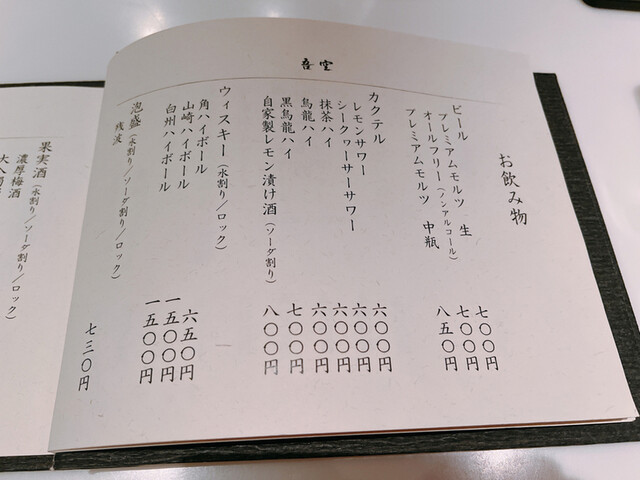 吾空
お飲み物
ビール
プレミアムモルツ 生 七〇〇円
オールフリー(ノンアルコール) 七〇〇円
プレミアムモルツ 中瓶 八五〇円
カクテル
レモンサワー 六〇〇円
シークヮーサーサワー 六〇〇円
抹茶ハイ 六〇〇円
烏龍ハイ 六〇〇円
黒烏龍ハイ 七〇〇円
自家製レモン漬け酒(ソーダ割り) 八〇〇円
ウィスキー(水割り/ロック)
角ハイボール 六五〇円
山崎ハイボール 一五〇〇円
白州ハイボール 一五〇〇円
泡盛(水割り/ソーダ割り/ロック)
残波 七三〇円
果実酒(水割り/ソーダ割り/ロック)
濃厚梅酒